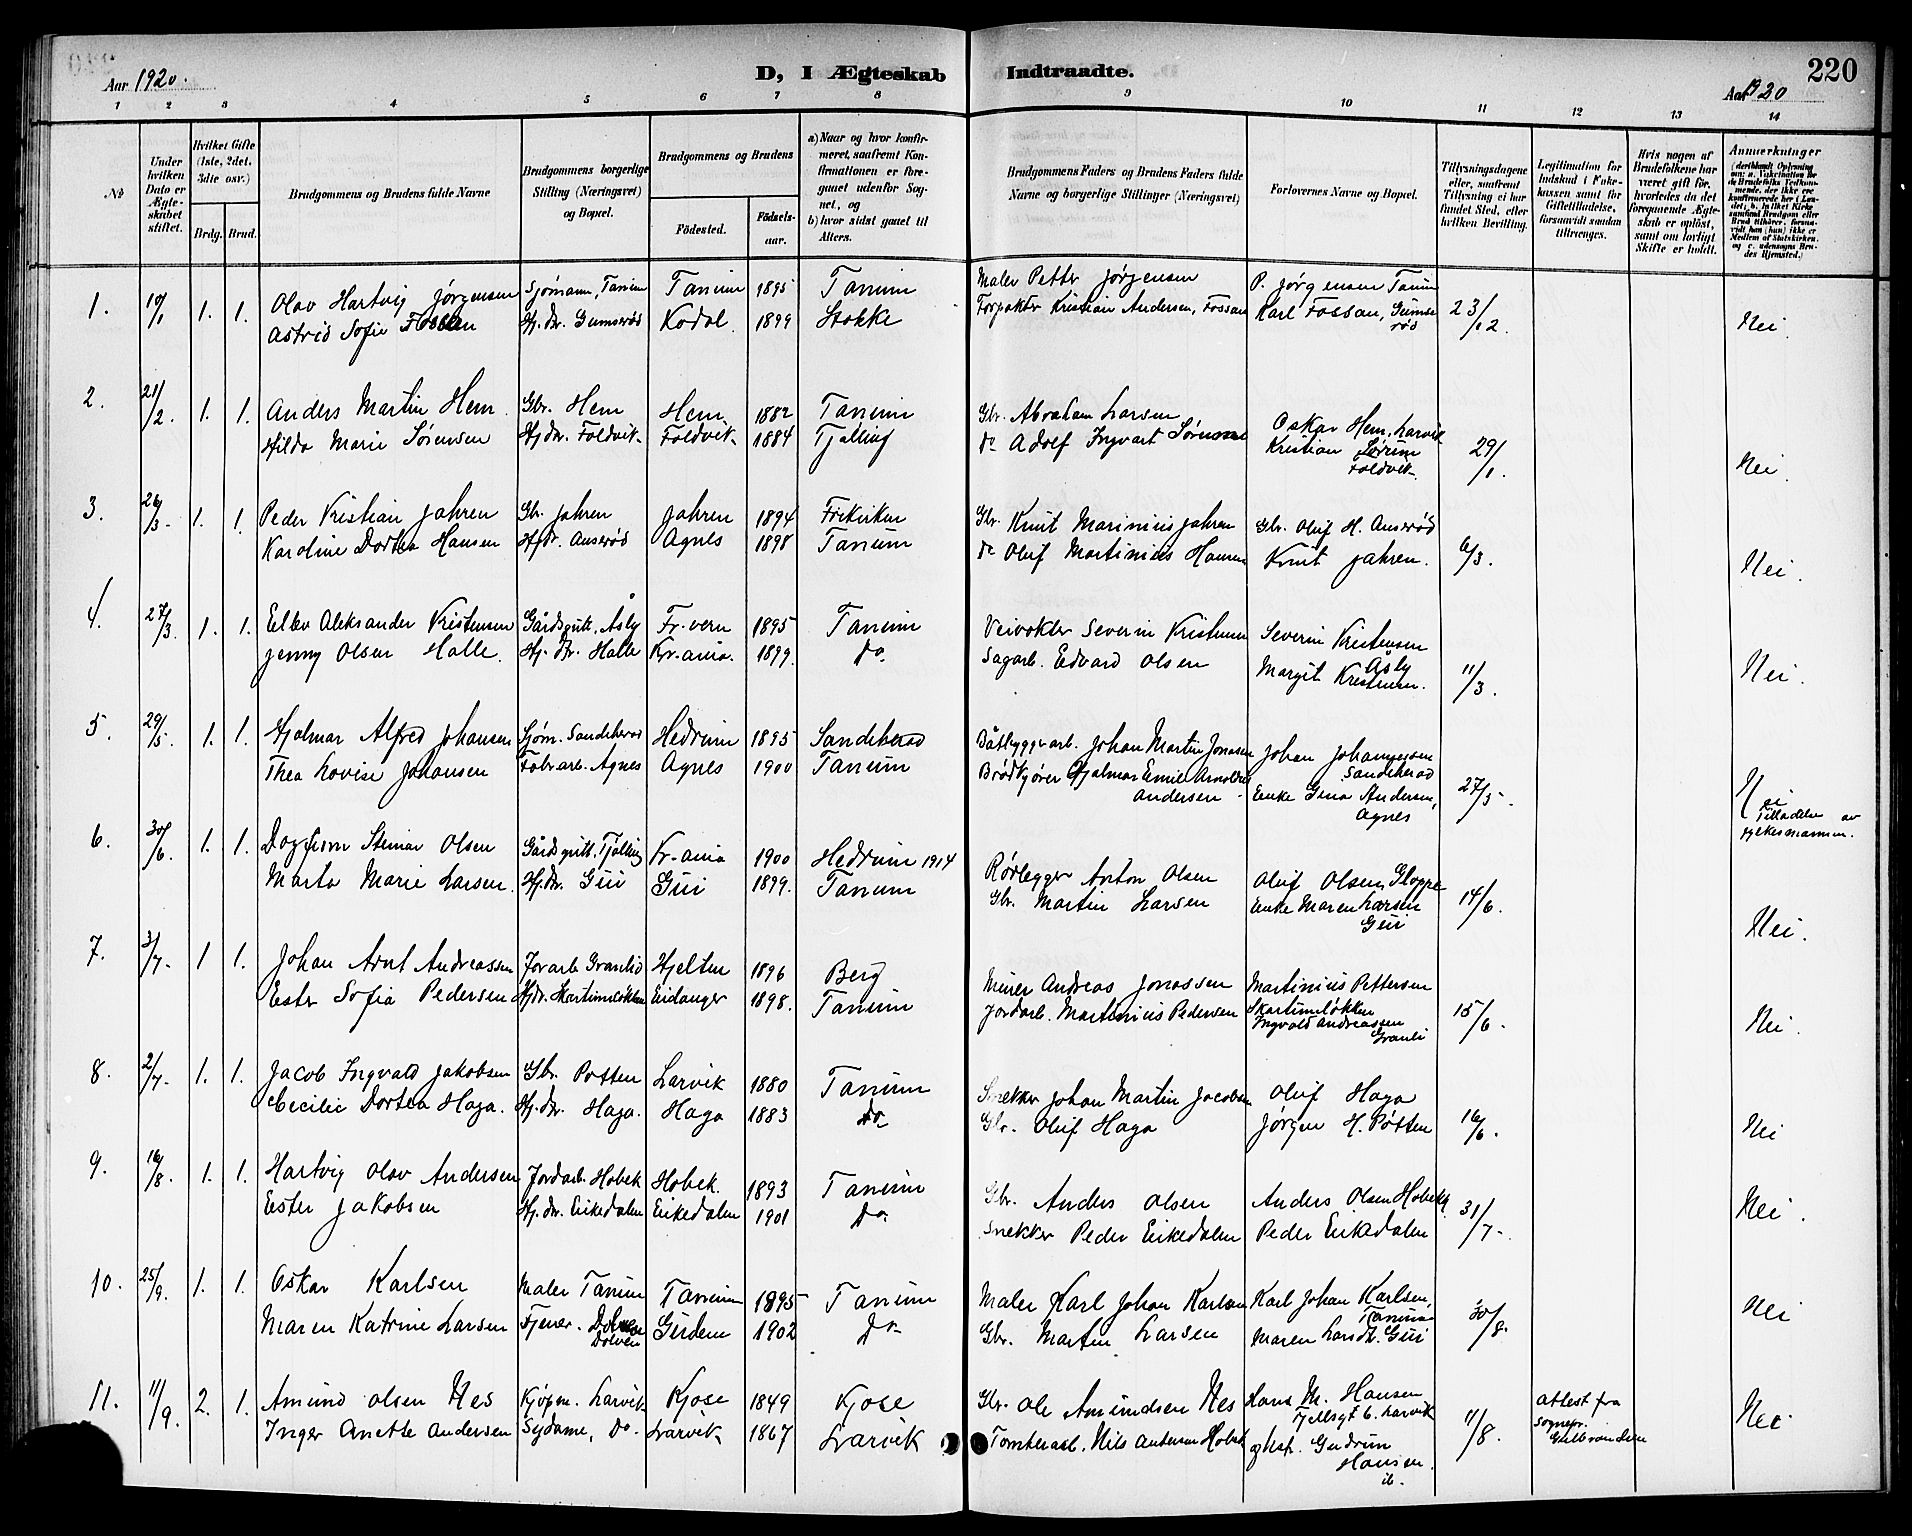 Aar 1920.
D, I Ægteskab Indtraadte.
220
Aar 1920
1 2 3 4 5 6 7 8 9 10 11 12 13 14
No
Under hvilken Dato er Ægteskabet stiftet.
Hvilket Gifte (1ste, 2det, 3die osv.)
Brdg. Brud.
Brudgommens og Brudens fulde Navne
Brudgommens borgerlige Stilling (Næringsvei) og Bopæl.
Brudgommens og Brudens
Födested. Födselsaar.
a) Naar og hvor konfirmeret, saafremt Konfirmationen er foregaaet udenfor Sognet, og
b) hvor sidst gaaet til Alters.
Brudgommens Faders og Brudens Faders fulde Navne og borgerlige Stillinger (Næringsvei)
Forlovernes Navne og Bopæl.
Tillysningsdagene eller, saafremt Tillysning ei har fundet Sted, efter hvilken Bevilling.
Legitimation for Indskud i Enkekassen samt for Giftetilladelse, forsaavidt saadan tiltrænges.
Hvis nogen af Brudefolkene har været gift før, hvorledes da det foregaaende Ægteskab er oplöst, samt om lovligt Skifte er holdt.
Anmærkninger
1. 10/1 1. 1. Olav Hartvig Jørgensen Sjömann, Tanum Tanum 1895 Tanum Maler Petter Jørgensen P. Jørgensen Tanum 23/12 Nei.
Astrid Sofie Fossan Hj. dr. Gumserød Kodal. 1899 Stokke Forpakter Kristian Andersen, Fossan Karl Fossan, Gumserød
2. 21/2 1. 1. Anders Martin Hem. Gbr. Hem Hem 1882 Tanum Gbr. Abraham Larsen Oskar Hem, Larvik 29/1. Nei.
Hilda Marie Sørensen Hj.dr. Foldvik Foldvik 1884 Tjølling do Adolf Ingvart Kristian Foldvik
3. 26/3 1. 1. Peder Kristian Jahren Gbr. Jahren Jahren 1894 Frikirken Gbr. Knut Marinius Jahren Gbr. Oluf H. Amserød 6/3. Nei.
Karoline Dortea Hansen Hjdr. Amserød Agnes 1898 Tanum do Oluf Martinius Hansen Knut Jahren.
4. 27/3. 1. 1. Ellev Aleksander Kristensen Gårdsgutt, Åsly Fr.vern 1895 Tanum Veivokter Severin Kristensen Severin Kristensen Åsly 11/3. Nei.
Jenny Olsen Halle. Hj. dr. Halle Kr.ania. 1899. do. Sagarb. Edvard Olsen Margit Kristensen.
5. 29/5. 1. 1. Hjalmar Alfred Johansen Sjøm. Sandeherad Hedrum 1895 Sandeherad Båtbyggerarb. Johan Martin Jonasen Johan Sandeherad 27/5. Nei
Thea Lovise Johansen Fabr.arb. Agnes Agnes 1900 Tanum Brødkjører Hjalmar Emil Andersen Enke Gina Andersen, Agnes Tilladelse av fylkesmannen.
6. 30/6. 1. 1. Dagfinn Steinar Olsen Gårdsgutt. Tjølling Kr.ania 1900 Hedrum 1914 Rørlegger Anton Olsen Oluf Olsen, Gloppe 14/6. Nei.
Marta Marie Larsen. Hj.dr. Gui Gui 1899. Tanum Gbr. Martin Larsen Enke Maren Larsen Gui
7. 3/7. 1 1. Johan Arnt Andreassen Jordarb. Granlid Hjelten 1896 Berg Murer Andreas Jonassen Martinius Pettersen 15/6. Nei.
Ester Sofia Pedersen Hjdr. Eidanger 1898. Tanum Jordarb. Martinius Pedersen Skartumløkken Ingvald Andreassen Granli
8. 2/7. 1. 1. Jacob Ingvald Jakobsen Gbr. Potten Larvik 1880 Tanum Snekker Johan Martin Jacobsen Oluf Haga 16/6. Nei
Cecilie Dortea Haga. Hj.dr. Haga. Haga 1883 do Gbr. Oluf Haga Jørgen H. Pøtten
9. 16/8. 1. 1. Hartvig Olav Andersen Jordarb. Hobek Hobek 1893 Tanum Gbr. Anders Olsen Anders Olsen Hobek 31/7. Nei.
Ester Jakobsen Hj.dr. Eikedalen Eikedalen 1901 do. Snekker Peder Eikedalen Peder Eikedalen
10. 25/9. 1. 1. Oskar Karlsen Maler Tanum Tanum 1895 Tanum Maler Karl Johan Karlsen Karl Johan Karlsen, Tanum 30/8. Nei
Maren Katrine Larsen Tjener. Dolven 1902 do Gbr. Martin Larsen Maren Gui
11. 11/9. 2. 1. Amund Olsen Nes Kjøpm. Larvik Kjose 1849 Kjose Gbr. Ole Amundsen Nes Hans M. Hansen 6. Larvik 11/8 Attest fra sognepr. Gulbrandsen Nei
Inger Anette Andersen Sydame, do. Larvik 1867 Larvik Tomtearb. Nils Andersen Hobek Gudrun Hansen ib.